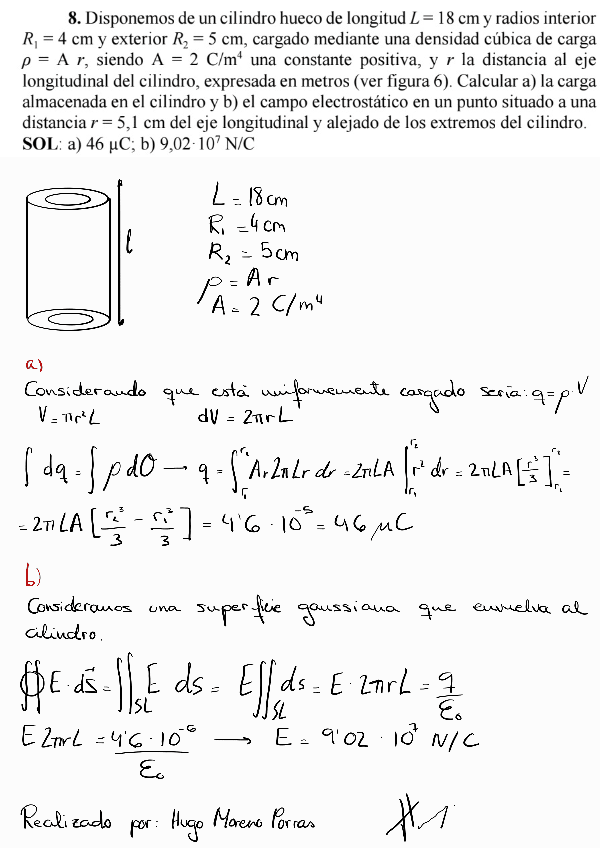 8. Disponemos de un cilindro hueco de longitud L = 18 cm y radios interior
R₁ = 4 cm y exterior R₂ = 5 cm, cargado mediante una densidad cúbica de carga
ρ = A r, siendo A = 2 C/m⁴ una constante positiva, y r la distancia al eje
longitudinal del cilindro, expresada en metros (ver figura 6). Calcular a) la carga
almacenada en el cilindro y b) el campo electrostático en un punto situado a una
distancia r = 5,1 cm del eje longitudinal y alejado de los extremos del cilindro.
SOL: a) 46 μC; b) 9,02·10⁷ N/C
l
L = 18 cm
R₁ = 4 cm
R₂ = 5 cm
ρ = A r
A = 2 C/m⁴
a)
Considerando que está uniformemente cargado sería: q = ρ·V
V = πr²L dV = 2πrL
∫ dq = ∫ ρ dV → q = ∫_{r₁}^{r₂} Ar 2πLr dr = 2πLA ∫_{r₁}^{r₂} r² dr = 2πLA [r³/3]_{r₁}^{r₂} =
= 2πLA [r₂³/3 - r₁³/3] = 4'6 · 10⁻⁵ = 46 μC
b)
Consideramos una superficie gaussiana que envuelva al
cilindro.
∯ E · ds⃗ = ∬_{SL} E ds = E ∬_{SL} ds = E · 2πrL = q/ε₀
E 2πrL = 4'6 · 10⁻⁶/ε₀ → E = 9'02 · 10⁷ N/C
Realizado por: Hugo Moreno Porras